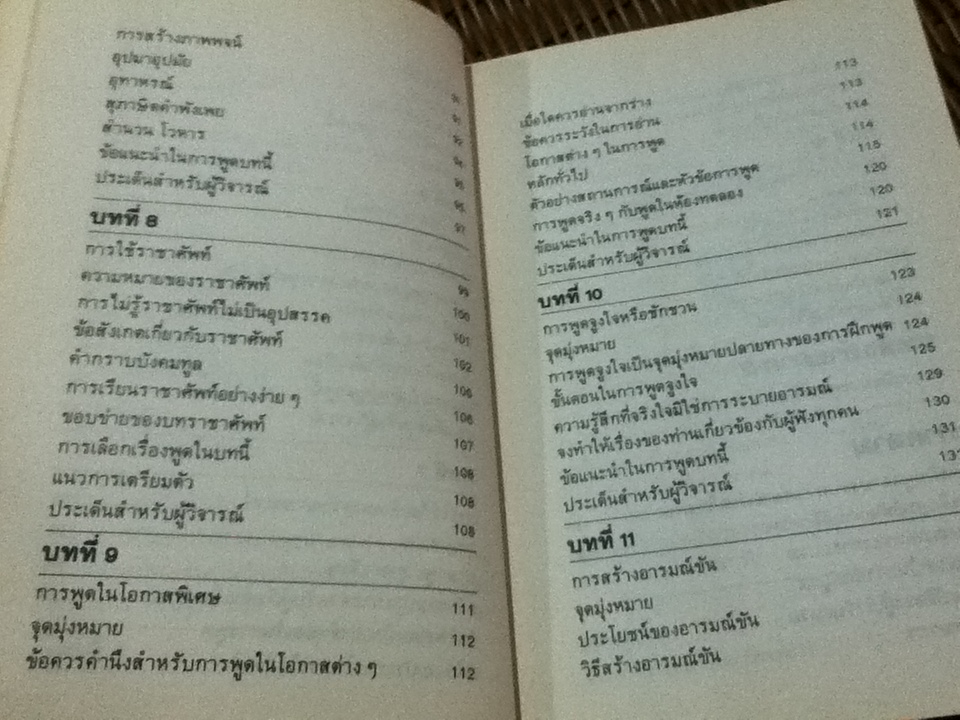 การสร้างภาพพจน์
อุปมาอุปมัย
อุทาหรณ์
สุภาษิตคำพังเพย
สำนวน โวหาร
ข้อแนะนำในการพูดบทนี้
ประเด็นสำหรับผู้วิจารณ์
บทที่ 8
การใช้ราชาศัพท์ 99
ความหมายของราชาศัพท์ 100
การไม่รู้ราชาศัพท์ไม่เป็นอุปสรรค 101
ข้อสังเกตเกี่ยวกับราชาศัพท์ 102
คำกราบบังคมทูล
การเรียนราชาศัพท์อย่างง่าย ๆ 106
ขอบข่ายของบทราชาศัพท์ 107
การเลือกเรื่องพูดในบทนี้ 108
แนวการเตรียมตัว 108
ประเด็นสำหรับผู้วิจารณ์ 108
บทที่ 9
การพูดในโอกาสพิเศษ 111
จุดมุ่งหมาย 112
ข้อควรคำนึงสำหรับการพูดในโอกาสต่าง ๆ 112
เมื่อใดควรอ่านจากร่าง 113
ข้อควรระวังในการอ่าน 113
โอกาสต่าง ๆ ในการพูด 114
หลักทั่วไป 114
ตัวอย่างสถานการณ์และหัวข้อการพูด 115
การพูดจริง ๆ กับพูดในห้องทดลอง 120
ข้อแนะนำในการพูดบทนี้ 120
ประเด็นสำหรับผู้วิจารณ์ 121
บทที่ 10
การพูดจูงใจหรือชักชวน 123
จุดมุ่งหมาย 124
การพูดจูงใจเป็นจุดมุ่งหมายปลายทางของการฝึกพูด 124
ขั้นตอนในการพูดจูงใจ 125
ความรู้สึกที่จริงใจมิใช่การระบายอารมณ์ 129
จงทำให้เรื่องของท่านเกี่ยวข้องกับผู้ฟังทุกคน 130
ข้อแนะนำในการพูดบทนี้ 131
ประเด็นสำหรับผู้วิจารณ์
บทที่ 11
การสร้างอารมณ์ขัน
จุดมุ่งหมาย
ประโยชน์ของอารมณ์ขัน
วิธีสร้างอารมณ์ขัน